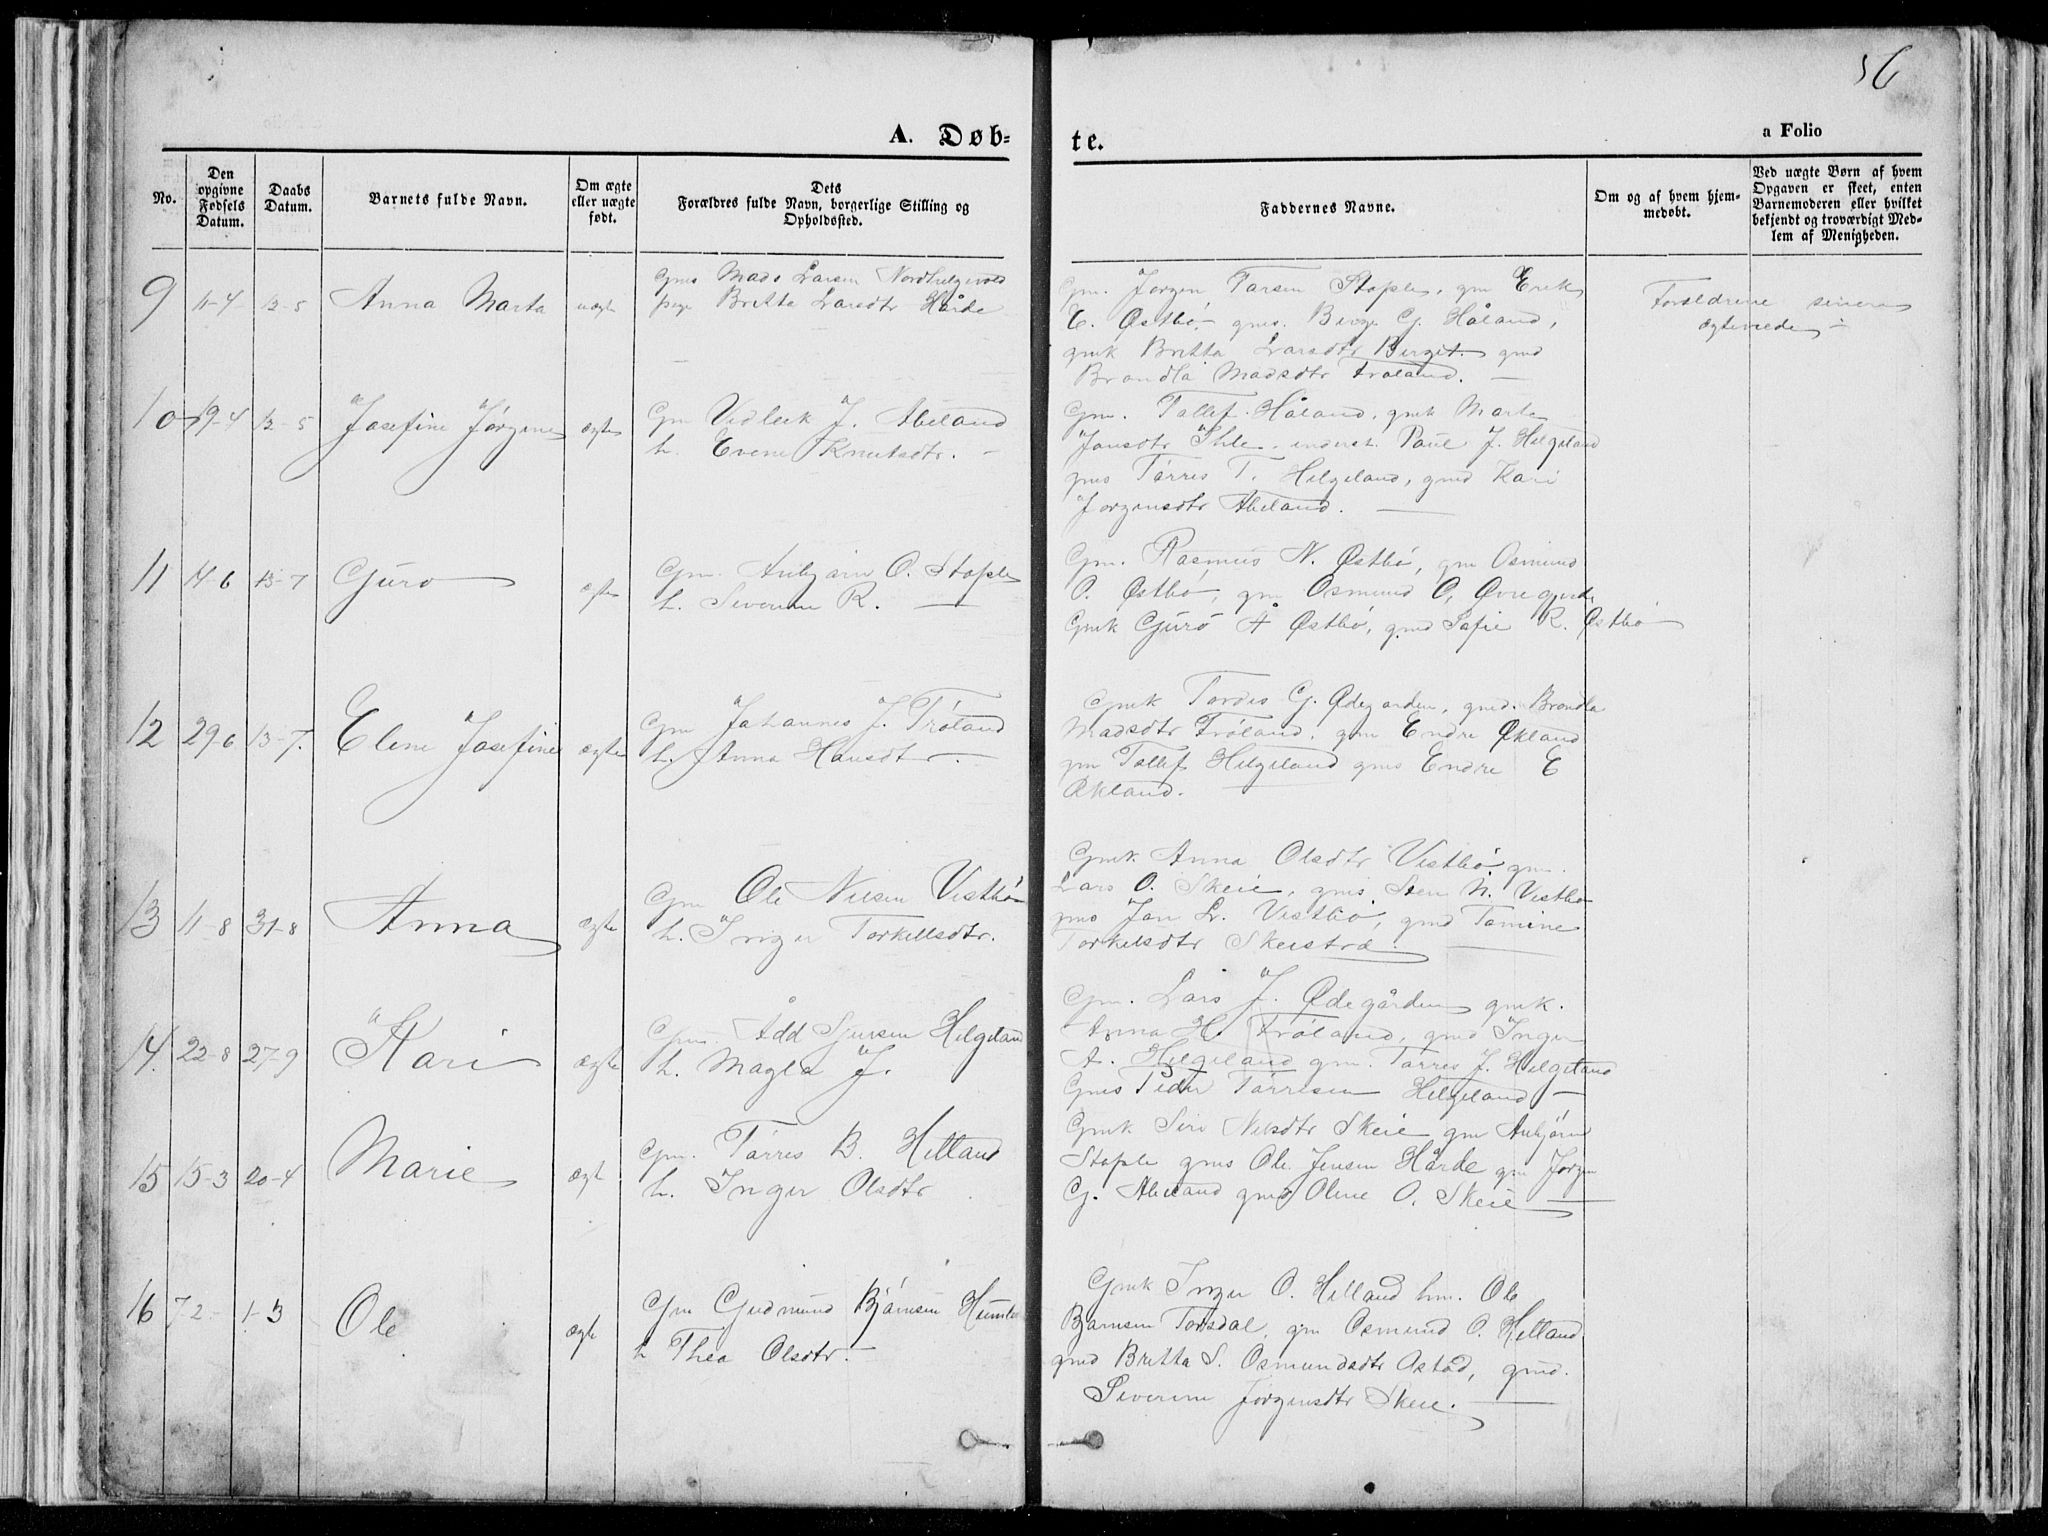 56
A. Døb-
te.
a Folio
No.
Den opgivne Fødsels Datum.
Daabs Datum.
Barnets fulde Navn.
Om ægte eller uægte født.
Dets Forældres fulde Navn, borgerlige Stilling og Opholdssted.
Faddernes Navne.
Om og af hvem hjemmedøbt.
Ved uægte Børn af hvem Opgaven er skeet, enten Barnemoderen eller hvilket bekjendt og troværdigt Medlem af Menigheden.
9 11-4 12-5 Anna Marta uægte
gms Mads Larsen
pige Britta Larsdtr Hårde
Gm. Jorgen Larsen Staple, gm Erik
E. Østbö, gms. Birge G. Håland,
gmk Britta Larsdtr Berget. gmd
Brondla Madsdtr Fröland. —
Foreldrene senere
ægteviede —
10 19-4 12-5 Josefine Jörgine ægte
Gm Vidleik J. Abeland
h. Evene Knutsdtr. —
Gm. Tollef Håland, gmk Marta
Jonsdtr Ihle, inderst. Paul J. Helgeland
gms Törres T. Helgeland, gmd Kari
Jorgensdtr Abeland. —
11 14-6 13-7 Guro ægte
Gm. Anbjörn O. Staple
h. Severine R. —
Gm. Rasmus N. Østbö, gm Osmund
O. Østbö, gm Osmund O. Øvregjerde
Gmk Guro A Østbö, gmd Sofie R. Østbö
12 29-6 13-7. Elene Josefine ægte
Gm Johannes J. Fröland
h. Anna Hansdtr. —
Gmk Tordis G. Ødegarden, gmd. Brondla
Madsdtr Fröland, gm Endre Økland
gm Tollef Helgeland gms Endre E
Økland.
13 11-8 31-8 Anna ægte
Gm Ole Nilsen Vestbö
h. Inger Torkellsdtr.
Gmk Anna Olsdtr Vestbö, gm.
Lars O. Skeie, gms Sten N. Vestbö
gms Jon L. Vestbö, gmd Tomine
Torkelsdtr Skeistrå
14. 22-8 27-9 Kari ægte
Gm. Ådd Sjursen Helgeland
h. Magla J.
Gm. Lars J. Ødegården gmk.
Anna H. Fröland, gmd Inger
A. Helgeland gm. Törres J. Helgeland
Gms Peder Törresen Helgeland —
15 15-3 20-4 Marie ægte
Gm. Törres B. Hetland
h. Inger Olsdtr
Gmk Siri Nilsdtr Skeie gm Anbjörn
Staple gms Ole Jensen Hårde gm Jorgen
G. Abeland gmd Oline O. Skeie —
16 7-2 1-3 Ole ægte
Gm Gudmund Björnsen
h Thea Olsdtr. —
Gmk Inger O. Hetland hm. Ole
Bjørnsen Torsdal, gm Osmund O. Hetland
gmd Britta S. Osmundsdtr Østad, gmd.
Severine Jorgensdtr Skeie. —